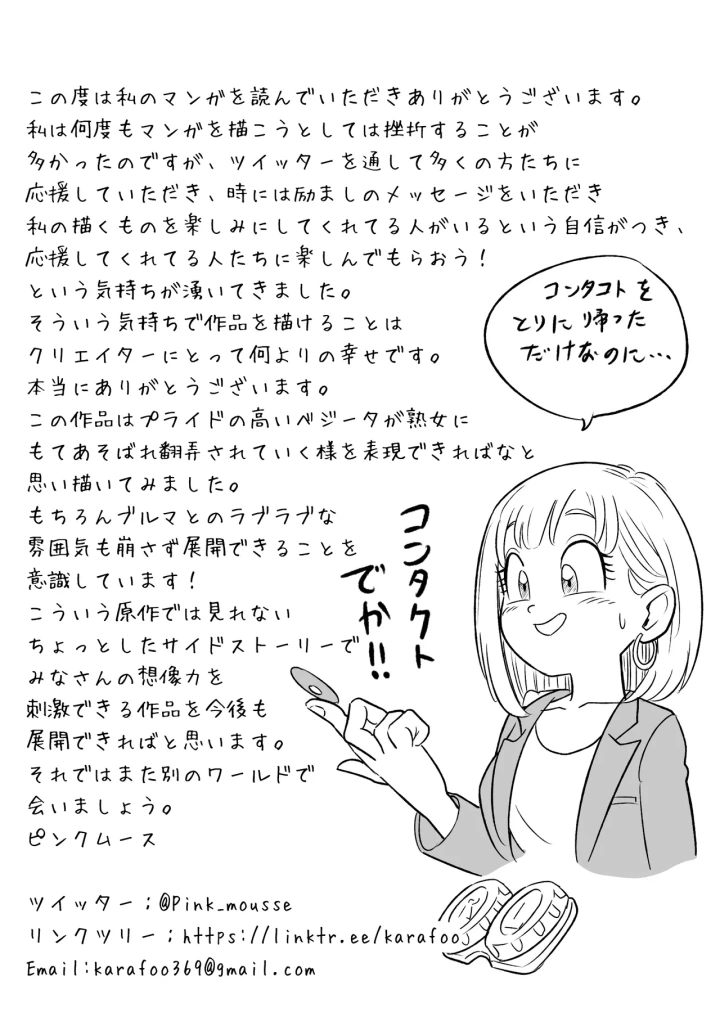 この度は私のマンガを読んでいただきありがとうございます。
私は何度もマンガを描こうとしては挫折することが
多かったのですが、ツイッターを通して多くの方たちに
応援していただき、時には励ましのメッセージをいただき
私の描くものを楽しみにしてくれてる人がいるという自信がつき、
応援してくれてる人たちに楽しんでもらおう!
という気持ちが湧いてきました。
そういう気持ちで作品を描けることは
クリエイターにとって何よりの幸せです。
本当にありがとうございます。
この作品はプライドの高いベジータが熟女に
もてあそばれ翻弄されていく様を表現できればなと
思い描いてみました。
もちろんブルマとのラブラブな
雰囲気も崩さず展開できることを
意識しています!
こういう原作では見れない
ちょっとしたサイドストーリーで
みなさんの想像力を
刺激できる作品を今後も
展開できればと思います。
それではまた別のワールドで
会いましょう。
ピンクムース
コンタコトを
とりに帰った
だけなのに…
コンタクト
でか!!
ツイッター;@Pink_mousse
リンクツリー;https://linktr.ee/karafoo
Email:karafoo369@gmail.com